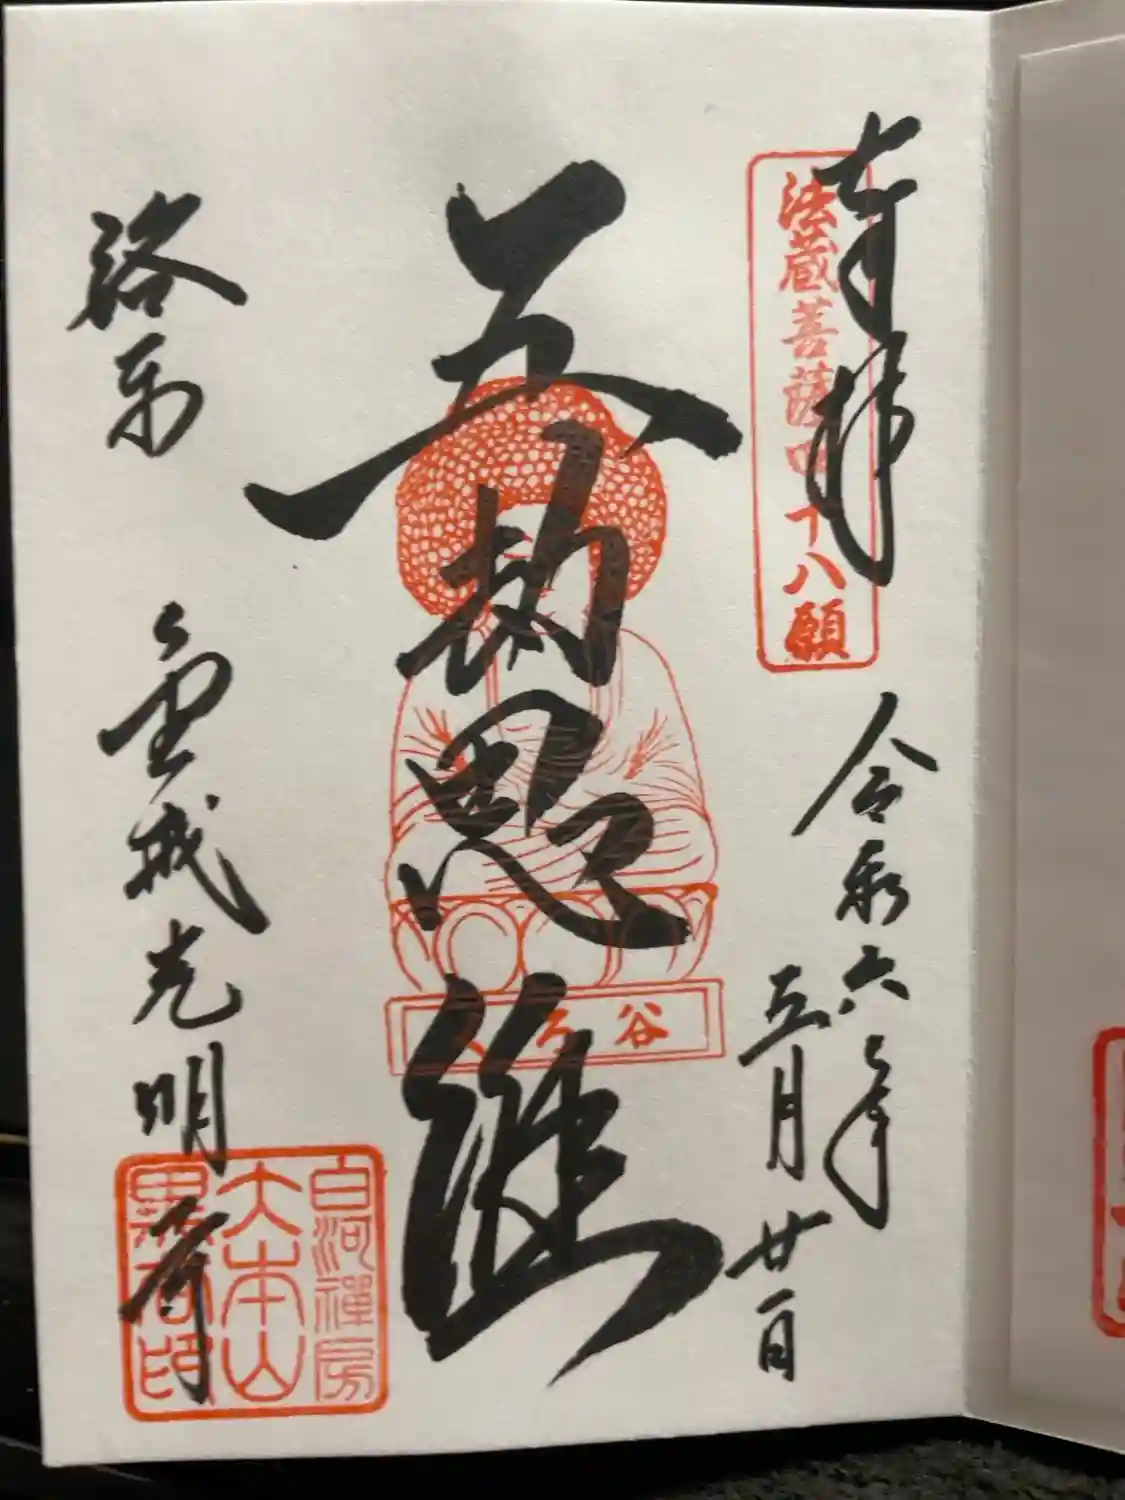 奉拝
法蔵菩薩四十八願
令和六年
五月廿一日
五劫思惟
谷
洛東
金戒光明寺
白河禅房
大本山
黒谷印